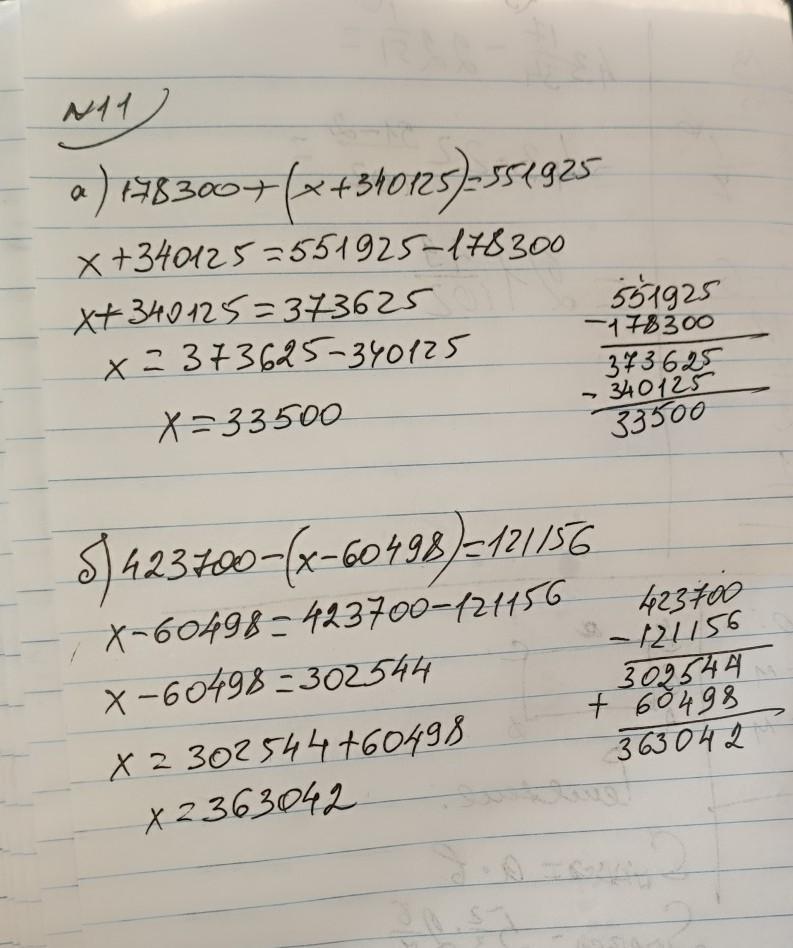 №11
а) 178300+(x+340125)=551925
x+340125=551925-178300
x+340125=373625
x=373625-340125
x=33500
551925
-178300
373625
-340125
33500
б) 423700-(x-60498)=121156
x-60498=423700-121156
x-60498=302544
x=302544+60498
x=363042
423700
-121156
302544
+ 60498
363042